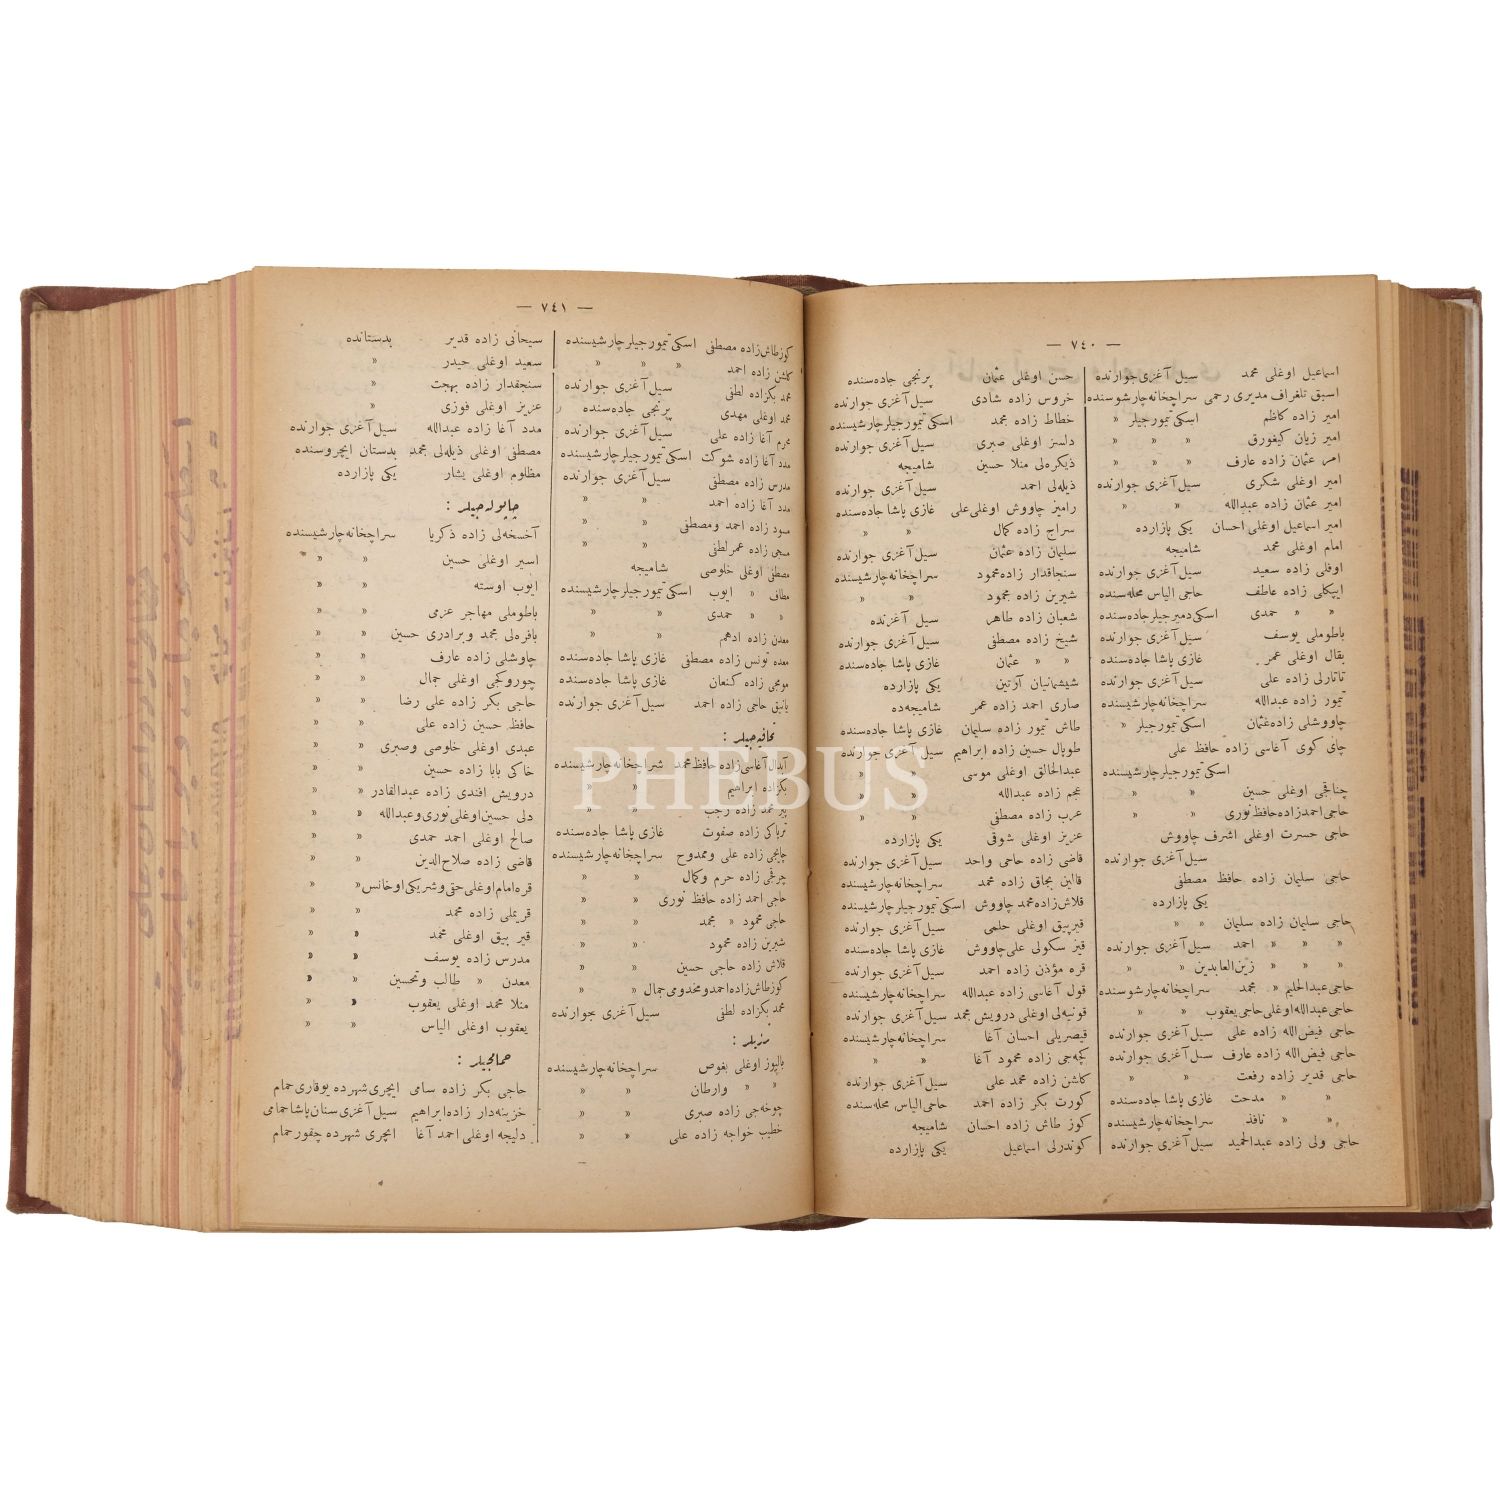 — ٧٤٠ —
اسماعیل اوغلی محمد سیل آغزی جوارنده
اسبق تلغراف مدیری رحمی سراجخانه چارشوسنده
امیر زاده کاظم اسکی تیمورجیلر »
امیر زیان کیغورق » » »
امر عثمان زاده عارف » » »
امیر اوغلی شکری سیل آغزی جوارنده
امیر عثمان زاده عبدالله » »
امیر اسماعیل اوغلی احسان یکی پازارده
امام اوغلی محمد شامیجه
اوفلی زاده سعید سیل آغزی جوارنده
ایپکلی زاده عاطف حاجی الیاس محله‌سنده
» » حمدی اسکی دمیرجیلر جاده‌سنده
باطوملی یوسف سیل آغزی جوارنده
بقال اوغلی عمر غازی پاشا جاده‌سنده
تاتارلی زاده علی سیل آغزی جوارنده
تیمور زاده عبدالله سراجخانه چارشیسنده
چاووشلی زاده عثمان اسکی تیمورجیلر »
چای کوی آغاسی زاده حافظ علی
اسکی تیمورجیلر چارشیسنده
چناقجی اوغلی حسین » »
حاجی احمد زاده حافظ نوری » »
حاجی حسرت اوغلی اشرف چاووش
سیل آغزی جوارنده
حاجی سلیمان زاده حافظ مصطفی
یکی پازارده
حاجی سلیمان زاده سلیمان » »
» » » احمد سیل آغزی جوارنده
» » » زین‌العابدین » »
حاجی عبدالحلیم » محمد سراجخانه چارشوسنده
حاجی عبدالله اوغلی حاجی یعقوب » »
حاجی فیض‌الله زاده علی سیل آغزی جوارنده
حاجی فیض‌الله زاده عارف سیل آغزی جوارنده
حاجی قدیر زاده رفعت » »
» » مدحت غازی پاشا جاده‌سنده
» » نافذ سراجخانه چارشیسنده
حاجی ولی زاده عبدالحمید سیل آغزی جوارنده
حسن اوغلی عثمان پرنجی جاده‌سنده
خروس زاده شادی سیل آغزی جوارنده
خطاط زاده محمد اسکی تیمورجیلر چارشیسنده
دلسز اوغلی صبری سیل آغزی جوارنده
ذیکره‌لی منلا حسین شامیجه
ذیله‌لی احمد سیل آغزی جوارنده
رامیز چاووش اوغلی علی غازی پاشا جاده‌سنده
سراج زاده کمال » »
سلیمان زاده عثمان سیل آغزی جوارنده
سنجاقدار زاده محمود سراجخانه چارشیسنده
شیرین زاده محمود » »
شعبان زاده طاهر سیل آغزنده
شیخ زاده مصطفی سیل آغزی جوارنده
» » عثمان غازی پاشا جاده‌سنده
شیشمانیان آرتین یکی پازارده
صاری احمد زاده عمر شامیجه‌ده
طاش تیمور زاده سلیمان غازی پاشا جاده‌سنده
طوپال حسین زاده ابراهیم سیل آغزی جوارنده
عبدالخالق اوغلی موسی » »
عجم زاده عبدالله » »
عرب زاده مصطفی » »
عزیز اوغلی شوقی یکی پازارده
قاضی زاده حاجی واحد سیل آغزی جوارنده
قالین بجاق زاده محمد سراجخانه چارشیسنده
قلاش زاده محمد چاووش اسکی تیمورجیلر چارشیسنده
قیرپیق اوغلی حلمی سیل آغزی جوارنده
قیز سکولی علی چاووش غازی پاشا جاده‌سنده
قره مؤذن زاده احمد سیل آغزی جوارنده
قول آغاسی زاده عبدالله سراجخانه چارشیسنده
قونیه‌لی اوغلی درویش محمد سیل آغزی جوارنده
قیصریلی احسان آغا سراجخانه چارشیسنده
کچه‌جی زاده محمود آغا » »
کاشن زاده محمد علی سیل آغزی جوارنده
کورت بکر زاده احمد حاجی الیاس محله‌سنده
کوز طاش زاده احسان شامیجه
کوندرلی اسماعیل یکی پازارده
— ٧٤١ —
کوزطاش زاده مصطفی اسکی تیمورجیلر چارشیسنده
کلشن زاده احمد » » »
محمد بکزاده لطفی سیل آغزی جوارنده
محمد اوغلی مهدی پرنجی جاده‌سنده
محرم آغا زاده علی سیل آغزی جوارنده
مدد آغا زاده شوکت اسکی تیمورجیلر چارشیسنده
مدرس زاده مصطفی سیل آغزی جوارنده
مدد آغا زاده احمد » »
مسود زاده احمد ومصطفی » »
مسجی زاده عمر لطفی » »
مصطفی اوغلی خلوصی شامیجه
مطاف » ایوب اسکی تیمورجیلر چارشیسنده
» » حمدی » »
معدن زاده ادهم » »
معده تونس زاده مصطفی غازی پاشا جاده‌سنده
مومجی زاده کنعان غازی پاشا جاده‌سنده
یانیق حاجی زاده احمد سیل آغزی جوارنده
تحافیه‌جیلر :
آبدال آغاسی زاده حافظ محمد سراجخانه چارشیسنده
بکزاده ابراهیم » »
پیر محمد زاده رجب » »
تریاکی زاده صفوت غازی پاشا جاده‌سنده
چایجی زاده علی وممدوح سراجخانه چارشیسنده
چرقجی زاده حرم وکمال » »
حاجی احمد زاده حافظ نوری » »
حاجی محمود » محمد »
شیرین زاده محمود » »
قلاش زاده حاجی حسین » »
کوزطاش زاده احمد و مخدومی جمال » »
محمد بکزاده لطفی سیل آغزی بجوارنده
ترزیلر :
بالیوز اوغلی بغوص سراجخانه چارشیسنده
» » وارطان » »
چوخه‌جی زاده صبری » »
خطیب خواجه زاده علی » »
سبحانی زاده قدیر بدستانده
سعید اوغلی حیدر »
سنجقدار زاده بهجت »
عزیز اوغلی فوزی »
مدد آغا زاده عبدالله سیل آغزی جوارنده
مصطفی اوغلی ذیله‌لی محمد بدستان ایچروسنده
مظلوم اوغلی یشار یکی پازارده
چاپوله‌جیلر :
آخسخه‌لی زاده ذکریا سراجخانه چارشیسنده
اسیر اوغلی حسین » »
ایوب اوسته » »
باطوملی مهاجر عزمی » »
بافره‌لی محمد وبرادری حسین » »
چاوشلی زاده عارف » »
چوروکجی اوغلی جمال » »
حاجی بکر زاده علی رضا » »
حافظ حسین زاده علی » »
عبدی اوغلی خلوصی وصبری » »
خاکی بابا زاده حسین » »
درویش افندی زاده عبدالقادر » »
دلی حسین اوغلی نوری وعبدالله » »
صالح اوغلی احمد حمدی » »
قاضی زاده صلاح‌الدین » »
قره امام اوغلی حقی وشریکی اوخانس » »
قریملی زاده محمد » »
قیر بیق اوغلی محمد » »
مدرس زاده یوسف » »
معدن » طالب وتحسین » »
منلا محمد اوغلی یعقوب » »
یعقوب اوغلی الیاس » »
حمامجیلر :
حاجی بکر زاده سامی ایچری شهرده یوقاری حمام
خزینه‌دار زاده ابراهیم سیل آغزی سنان پاشا حمامی
دلیجه اوغلی احمد آغا ایچری شهرده چفور حمام
PHEBUS